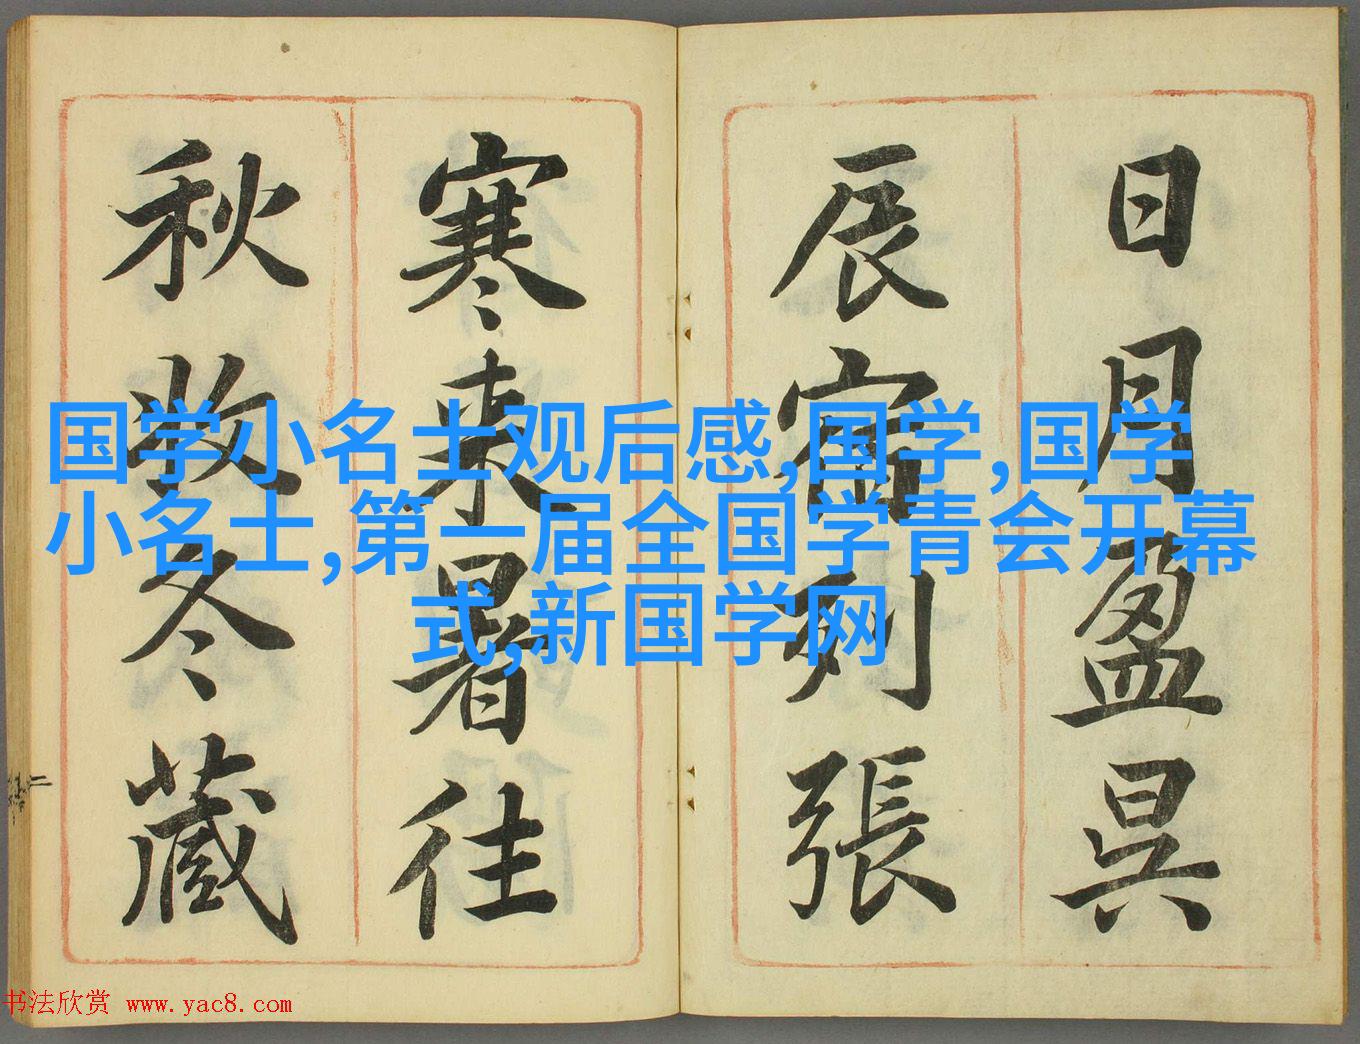 日月盈昃
辰宿列張
寒来暑往
秋收冬藏
国学小名士观后感,国学,国学
小名士,第一届全国学青会开幕
式,新国学网
书法欣赏 www.yac8.com